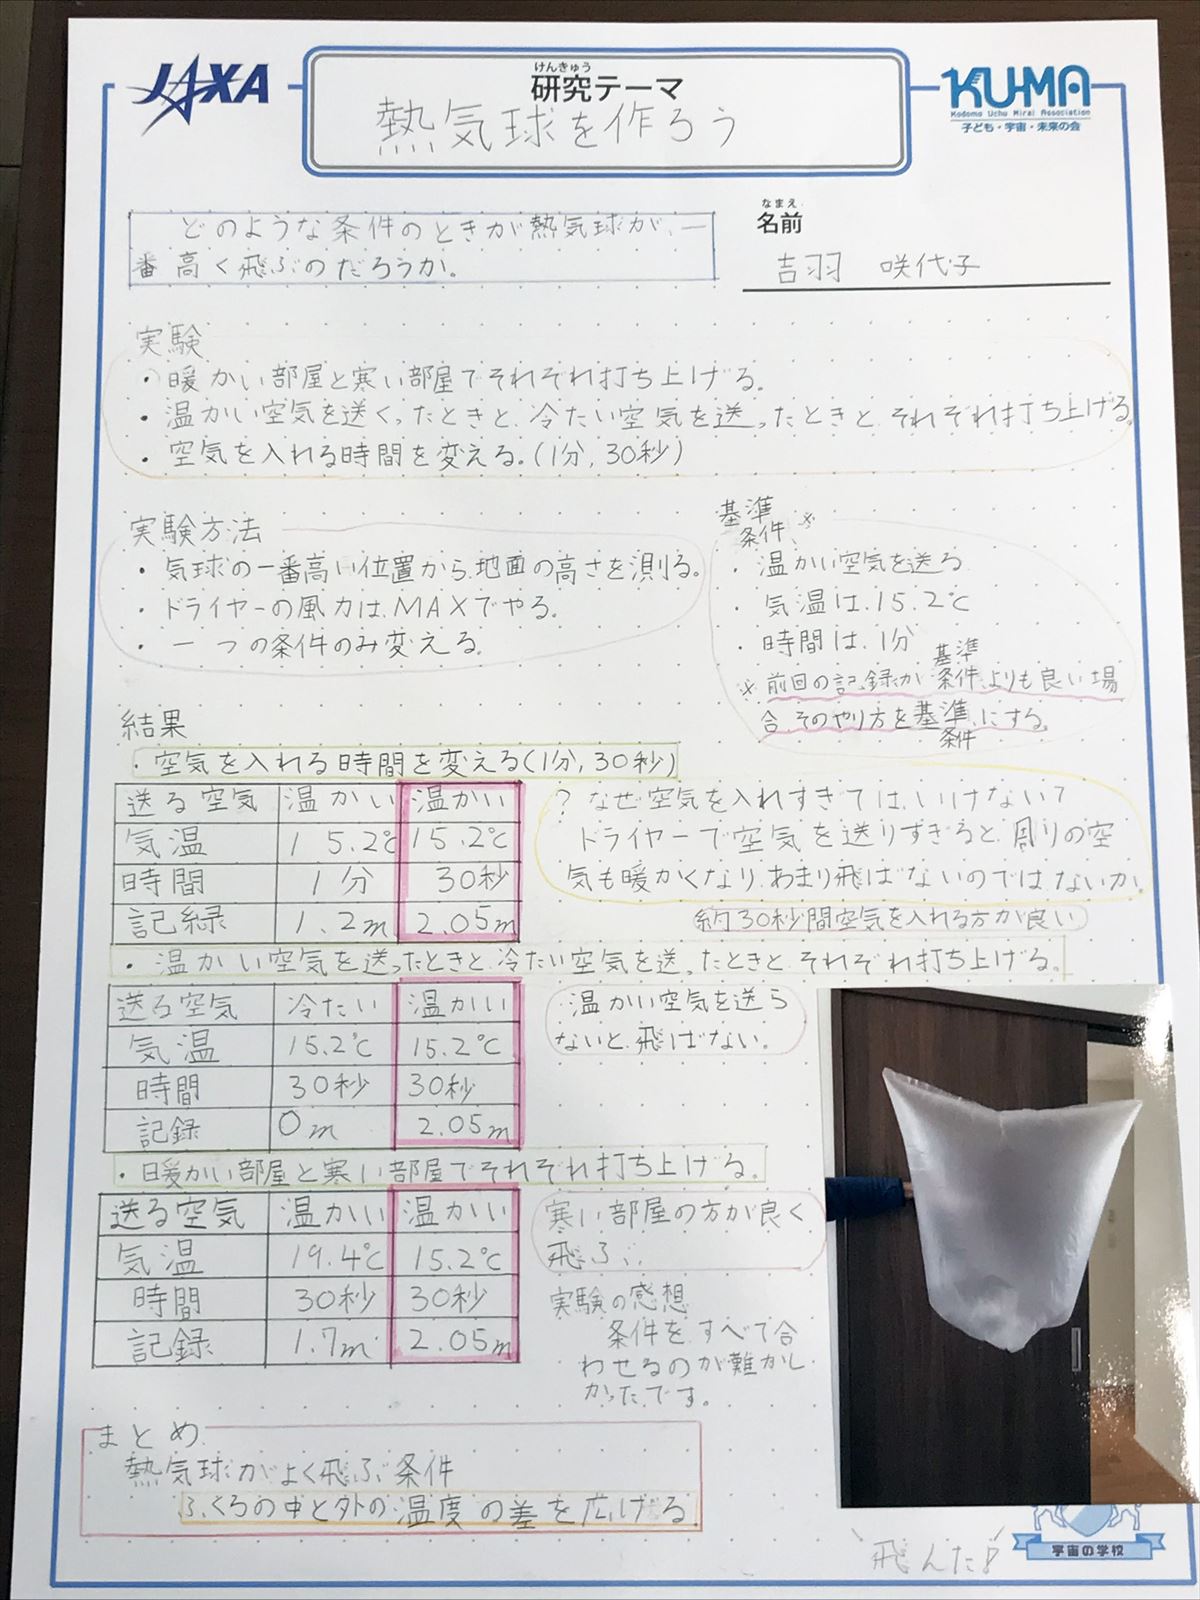 JAXA
けんきゅう
研究テーマ
熱気球を作ろう
KU-MA
Kodomo Uchu Mirai Association
子ども・宇宙・未来の会
どのような条件のときが熱気球が、一
番高く飛ぶのだろうか。
なまえ
名前
吉羽 咲代子
実験
・暖かい部屋と寒い部屋でそれぞれ打ち上げる。
・温かい空気を送くったときと、冷たい空気を送ったときと、それぞれ打ち上げる。
・空気を入れる時間を変える。(1分,30秒)
実験方法
・気球の一番高い位置から、地面の高さを測る。
・ドライヤーの風力は、MAXでやる。
・一つの条件のみ変える。
基準
条件、※
・温かい空気を送る
・気温は、15.2℃
・時間は、1分
※前回の記録が基準条件、よりも良い場
合、そのやり方を基準条件、にする。
結果
・空気を入れる時間を変える(1分,30秒)
送る空気 温かい 温かい
気温 15.2℃ 15.2℃
時間 1分 30秒
記緑 1.2m 2.05m
?なぜ空気を入れすぎては、いけない?
ドライヤーで空気を送りすぎると、周りの空
気も暖かくなり、あまり飛ばないのではないか。
約30秒間空気を入れる方が良い
・温かい空気を送ったときと、冷たい空気を送ったときと、それぞれ打ち上げる。
送る空気 冷たい 温かい
気温 15.2℃ 15.2℃
時間 30秒 30秒
記録 0m 2.05m
温かい空気を送ら
ないと、飛ばない。
・暖かい部屋と寒い部屋でそれぞれ打ち上げる。
送る空気 温かい 温かい
気温 19.4℃ 15.2℃
時間 30秒 30秒
記録 1.7m 2.05m
寒い部屋の方が良く
飛ぶ。
実験の感想
条件をすべて合
わせるのが難かし
かったです。
まとめ
熱気球がよく飛ぶ条件
ふくろの中と外の温度の差を広げる
飛んだ♪
宇宙の学校